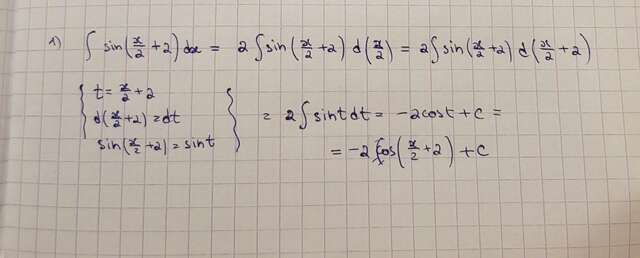 1) ∫ sin(x/2 + 2) dx = 2 ∫ sin(x/2 + 2) d(x/2) = 2 ∫ sin(x/2 + 2) d(x/2 + 2)
{ t = x/2 + 2
d(x/2 + 2) = dt
sin(x/2 + 2) = sin t }
= 2 ∫ sin t dt = -2 cos t + C =
= -2 cos(x/2 + 2) + C